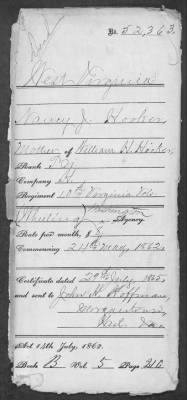 Dead
No. 52,363.
West Virginia
Nancy J. Hooker
Mother of William H. Hooker,
Rank
Company
Regiment 10th Virginia Vols.
Wheeling Agency.
Rate per month, $ 8
Commencing 24th May, 1862.
Certificate dated 29th July 1865,
and sent to John H. Hoffman,
Morgantown,
West Va
Act 14th July, 1862.
Book B Vol. 5 Page